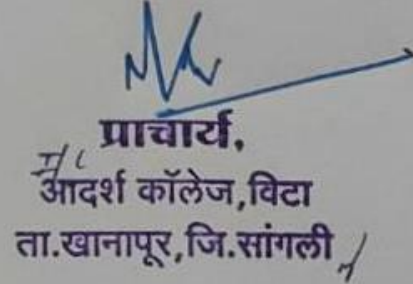 प्राचार्य,
I/C
आदर्श कॉलेज,विटा
ता.खानापूर,जि.सांगली